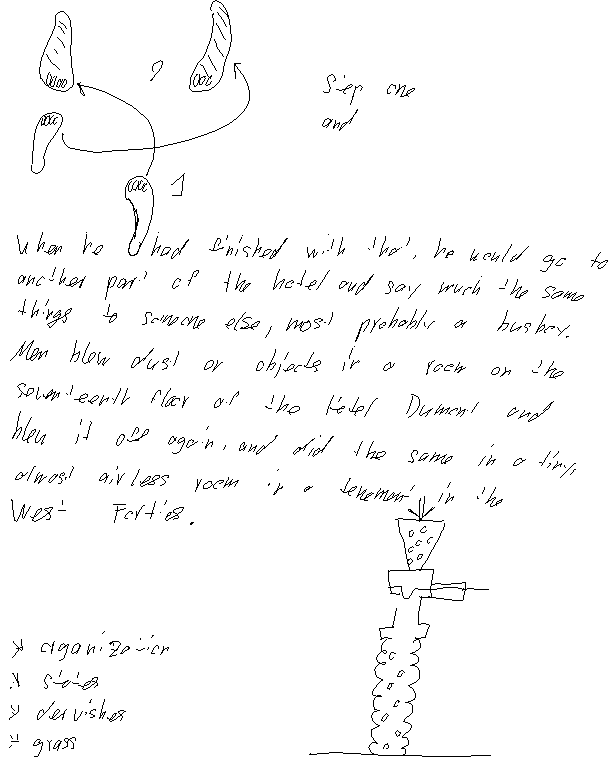 2
Step one
and
1
When he had finished with that, he would go to
another part of the hotel and say much the same
things to someone else, most probably a busboy.
Men blew dust on objects in a room on the
seventeenth floor of the Hotel Dumont and
blew it off again, and did the same in a tiny,
almost airless room in a tenement in the
West Forties.
organization
states
dervishes
grass